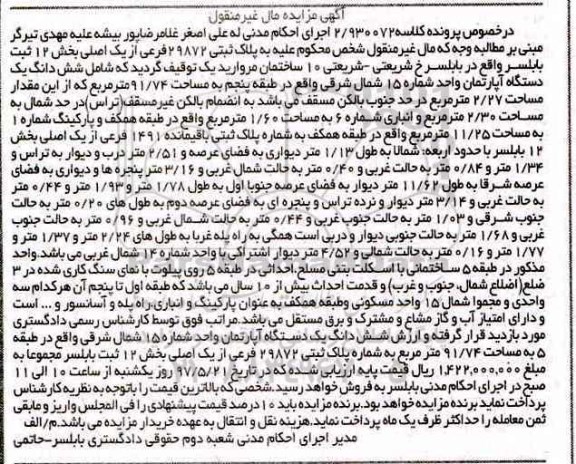 آگهی مزایده مال غیرمنقول
درخصوص پرونده کلاسه۲/۹۳۰۰۷۲ اجرای احکام مدنی له علی اصغر غلامرضاپور بیشه علیه مهدی تیرگر
مبنی بر مطالبه وجه که مال غیرمنقول شخص محکوم علیه به پلاک ثبتی ۲۹۸۷۲فرعی از یک اصلی بخش ۱۲ ثبت
بابلسر واقع در بابلسر خ شریعتی -شریعتی ۱۰ ساختمان مروارید یک توقیف گردید که شامل شش دانگ یک
دستگاه آپارتمان واحد شماره ۱۵ شمال شرقی واقع در طبقه پنجم به مساحت ۹۱/۷۴مترمربع که از این مقدار
مساحت ۲/۲۷ مترمربع در حد جنوب بالکن مسقف می باشد به انضمام بالکن غیرمسقف(تراس)در حد شمال به
مساحت ۲/۳۰ مترمربع و انباری شماره ۶ به مساحت ۱/۶۰ مترمربع واقع در طبقه همکف و پارکینگ شماره ۱
به مساحت ۱۱/۲۵ مترمربع واقع در طبقه همکف به شماره پلاک ثبتی باقیمانده ۱۴۹۱ فرعی از یک اصلی بخش
۱۲ بابلسر با حدود اربعه: شمالا به طول ۱/۱۳ متر دیواری به فضای عرصه و ۲/۵۱ متر درب و دیوار به تراس و
۱/۳۴ متر و ۰/۸۴ متر به حالت غربی و ۰/۴۰ متر به حالت شمال غربی و ۳/۱۶ متر پنجره ها و دیواری به فضای
عرصه شرقا به طول ۱۱/۶۲ متر دیوار به فضای عرصه جنوبا اول به طول ۱/۷۸ متر و ۱/۹۳ متر و ۰/۴۴ متر
به حالت غربی و ۳/۱۴ متر دیوار و نرده تراس و پنجره ای به فضای عرصه دوم به طول های ۰/۲۰ متر به حالت
جنوب شرقی و ۱/۰۳ متر به حالت جنوب غربی و ۰/۴۴ متر به حالت شمال غربی و ۰/۹۶ متر به حالت جنوب
غربی و ۱/۶۸ متر به حالت جنوبی دیوار و دربی است همگی به راه پله غربا به طول های ۲/۲۴ متر و ۱/۳۷ متر و
۱/۷۷ متر و ۰/۱۶ متر به حالت شمالی و ۴/۵۲ متر دیوار اشتراکی با واحد شماره ۱۴ شمال غربی می باشد.واحد
مذکور در طبقه ۵ ساختمانی با اسکلت بتنی مسلح،احداثی در طبقه ۵ روی پیلوت با نمای سنگ کاری شده در ۳
ضلع(اضلاع شمال، جنوب و غرب) و قدمت احداث بیش از ۱۰ سال می باشد که طبقه اول تا پنجم آن هرکدام سه
واحدی و مجموا شمال ۱۵ واحد مسکونی وطبقه همکف به عنوان پارکینگ و انباری،راه پله و آسانسور و ... است
و دارای امتیاز آب و گاز مشاع و مشترک و برق مستقل می باشد.مراتب فوق توسط کارشناس رسمی دادگستری
مورد بازدید قرار گرفته و ارزش شش دانگ یک دستگاه آپارتمان واحد شماره ۱۵ شمال شرقی واقع در طبقه
۵ به مساحت ۹۱/۷۴ متر مربع به شماره پلاک ثبتی ۲۹۸۷۲ فرعی از یک اصلی بخش ۱۲ ثبت بابلسر مجموعا به
مبلغ ۱,۴۲۲,۰۰۰,۰۰۰ ریال قیمت پایه ارزیابی شده که در تاریخ ۹۷/۵/۲۱ روز یکشنبه از ساعت ۱۰ الی ۱۱
صبح در اجرای احکام مدنی بابلسر به فروش خواهد رسید.شخصی که بالاترین قیمت را باتوجه به نظریه کارشناس
پرداخت نماید برنده مزایده خواهد بود.برنده مزایده باید ۱۰ درصد قیمت پیشنهادی را فی المجلس واریز و مابقی
ثمن معامله را حداکثر ظرف یک ماه پرداخت نماید.هزینه نقل و انتقال به عهده خریدار مزایده می باشد.م/الف
مدیر اجرای احکام مدنی شعبه دوم حقوقی دادگستری بابلسر-حاتمی